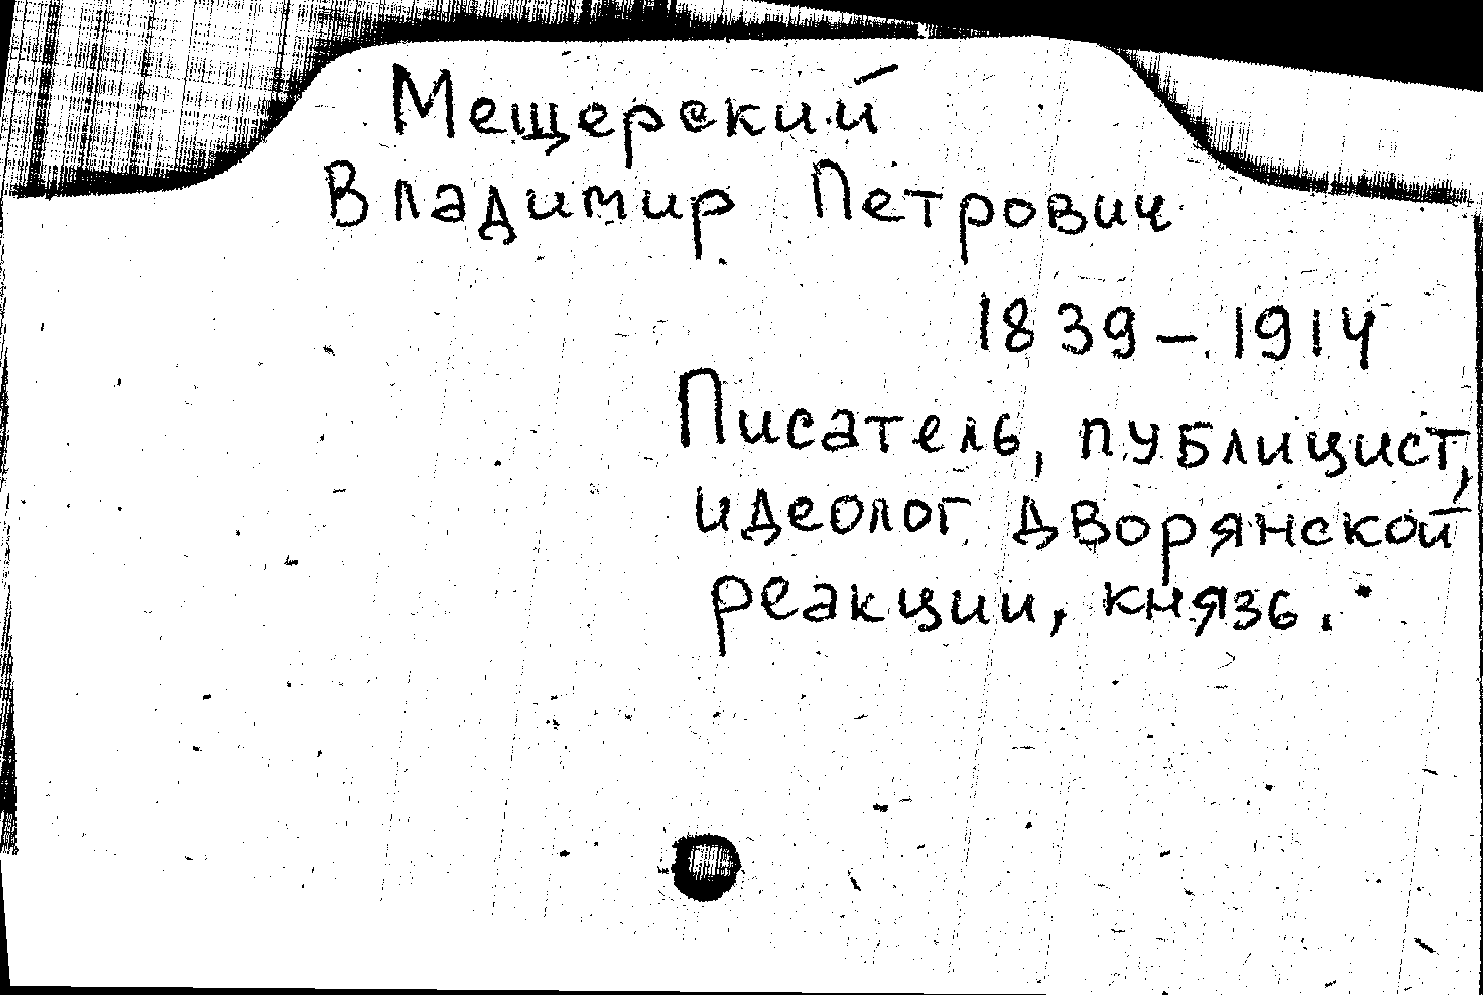 Мещерский
Владимир Петрович
1839-1914
Писатель, публицист,
идеолог дворянской
реакции, князь.